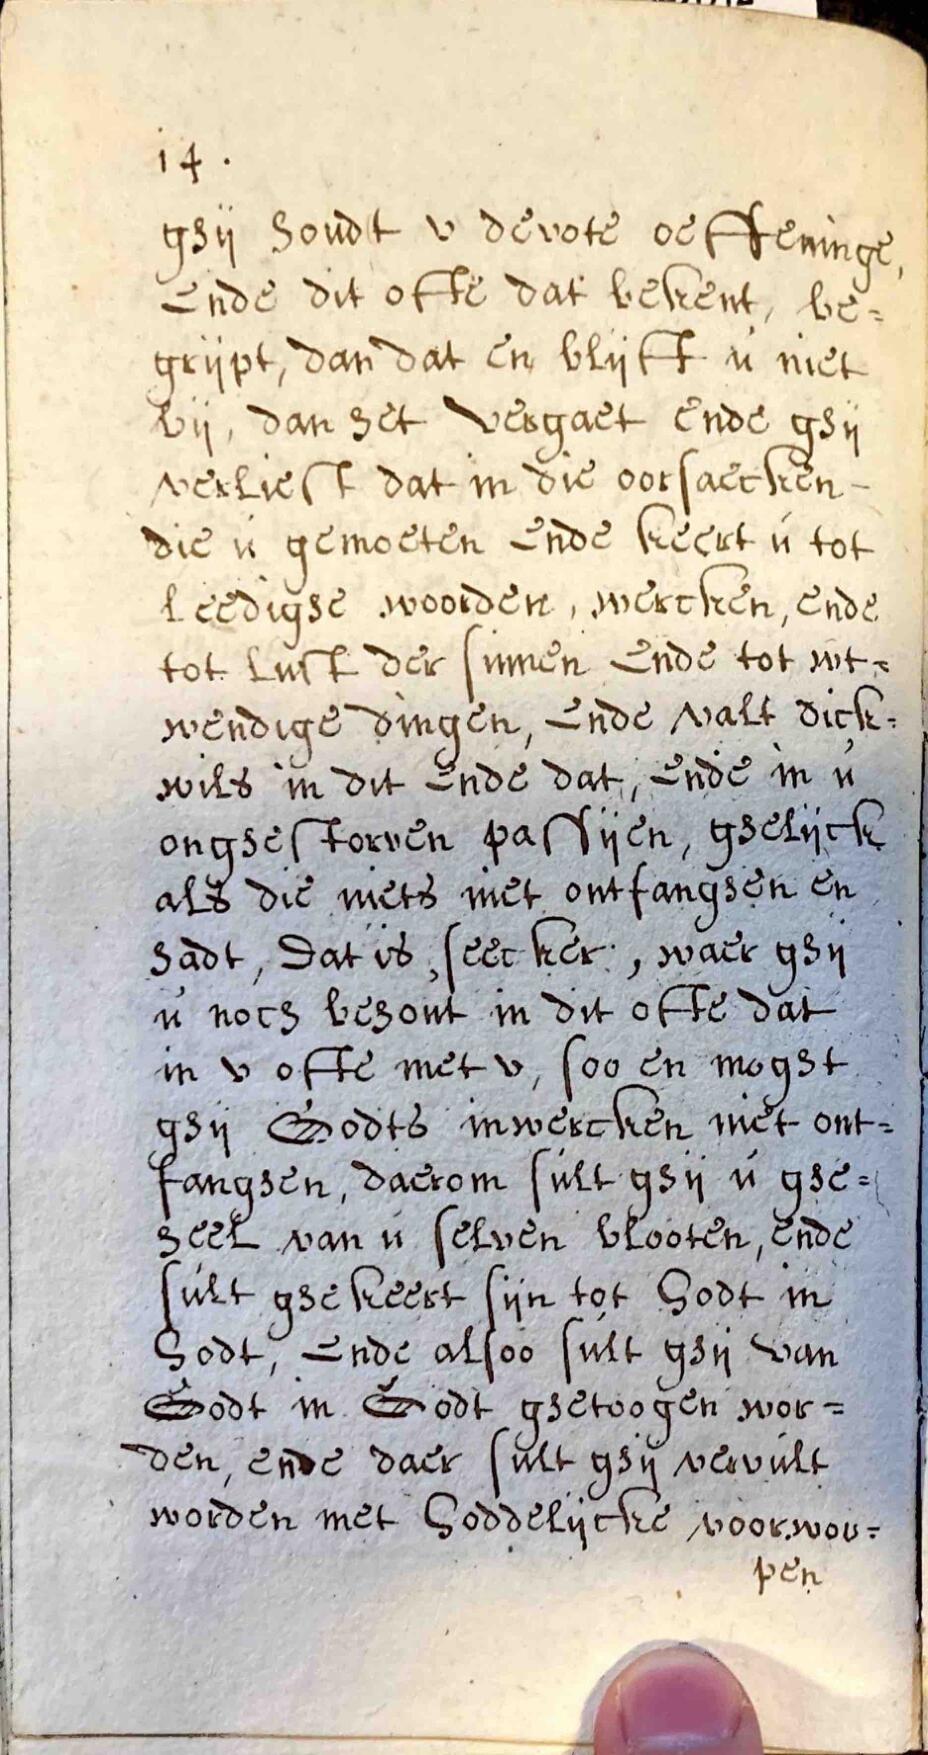 14.
ghij houdt v devote oeffeninge,
Ende dit ofte dat bekent, be=
grijpt, dan dat en blijft ú niet
bij, dan het vergaet ende ghij
verliest dat in die oorsaecken
die ú gemoeten ende keert ú tot
leedighe woorden, wercken, ende
tot lust der sinnen Ende tot wt=
wendige dingen, Ende valt dick=
wils in dit Ende dat, Ende in ú
onghestorven passijen, ghelijck
als die niets niet ontfanghen en
hadt, Dat is seecker, waer ghij
ú noch behout in dit ofte dat
in v ofte met v, soo en moght
ghij Godts inwercken niet ont=
fanghen, daerom súlt ghij ú ghe=
heel van ú selven blooten, ende
súlt ghekeert sijn tot Godt in
Godt, Ende alsoo súlt ghij van
Godt in Godt ghetoogen wor=
den, ende daer súlt ghij vervúlt
worden met Goddelijcke voorwor=
pen